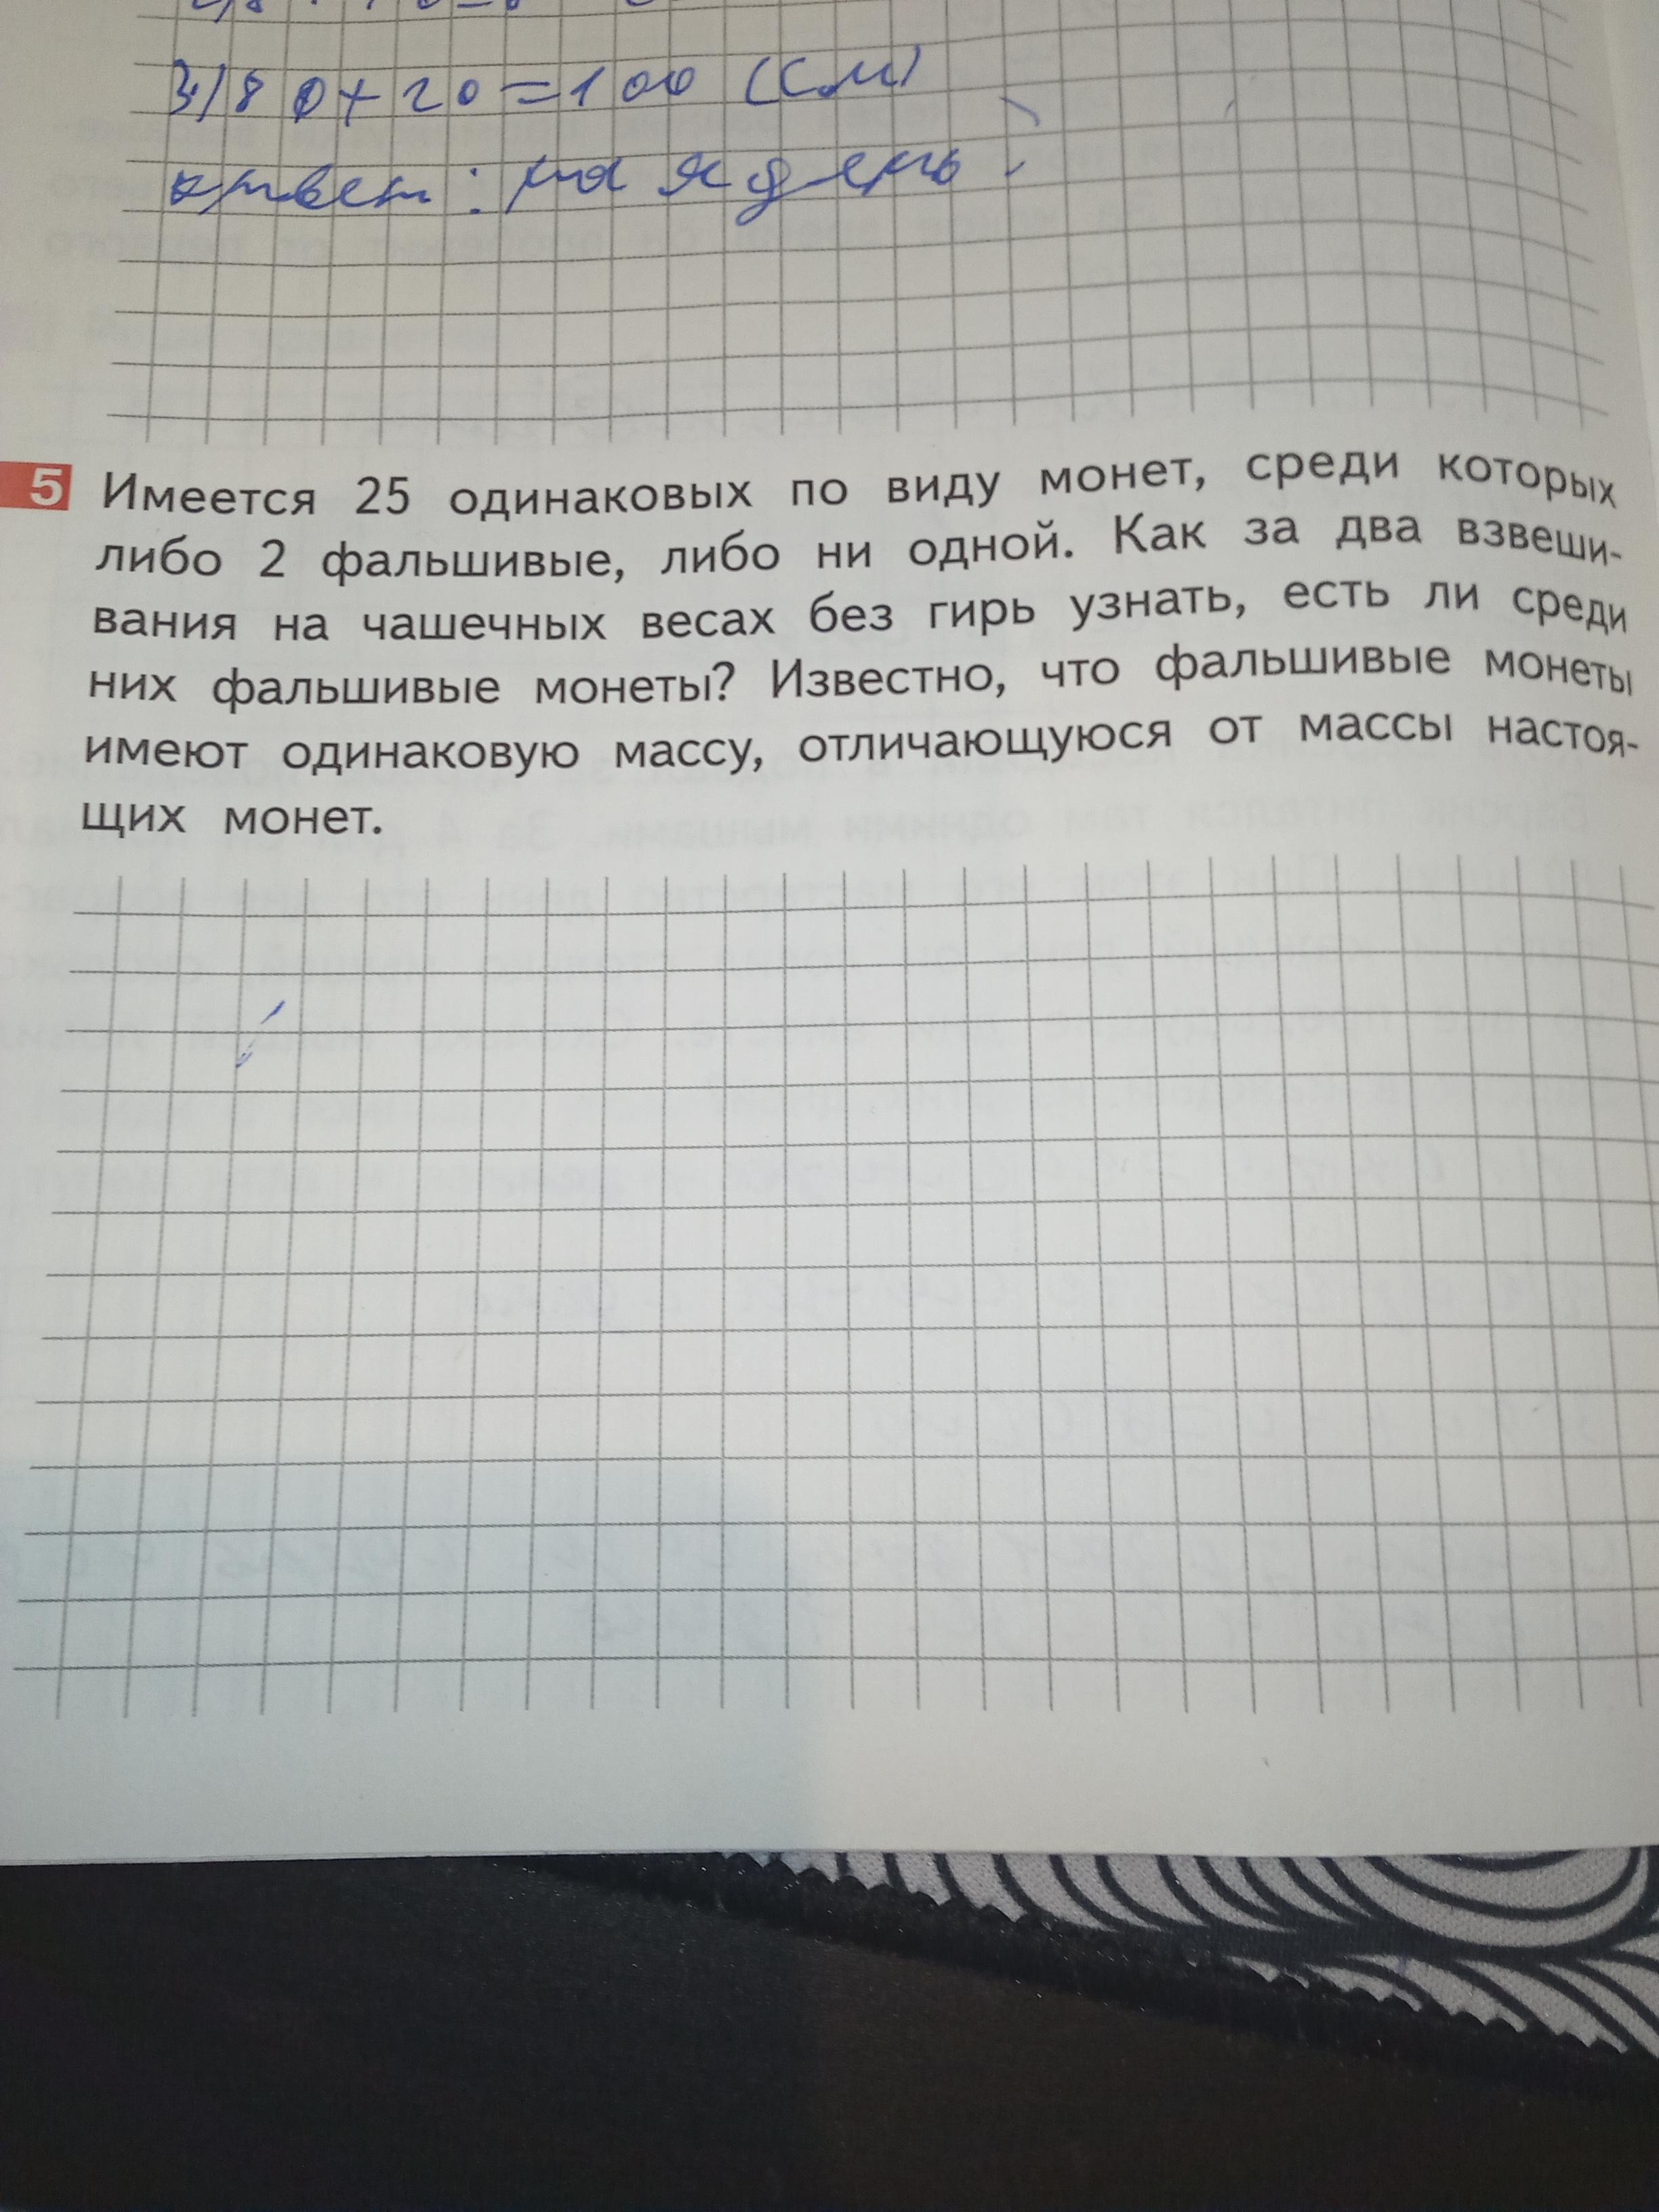 3) 80+20=100 (см)
ответ: на я день
5 Имеется 25 одинаковых по виду монет, среди которых
либо 2 фальшивые, либо ни одной. Как за два взвеши-
вания на чашечных весах без гирь узнать, есть ли среди
них фальшивые монеты? Известно, что фальшивые монеты
имеют одинаковую массу, отличающуюся от массы настоя-
щих монет.